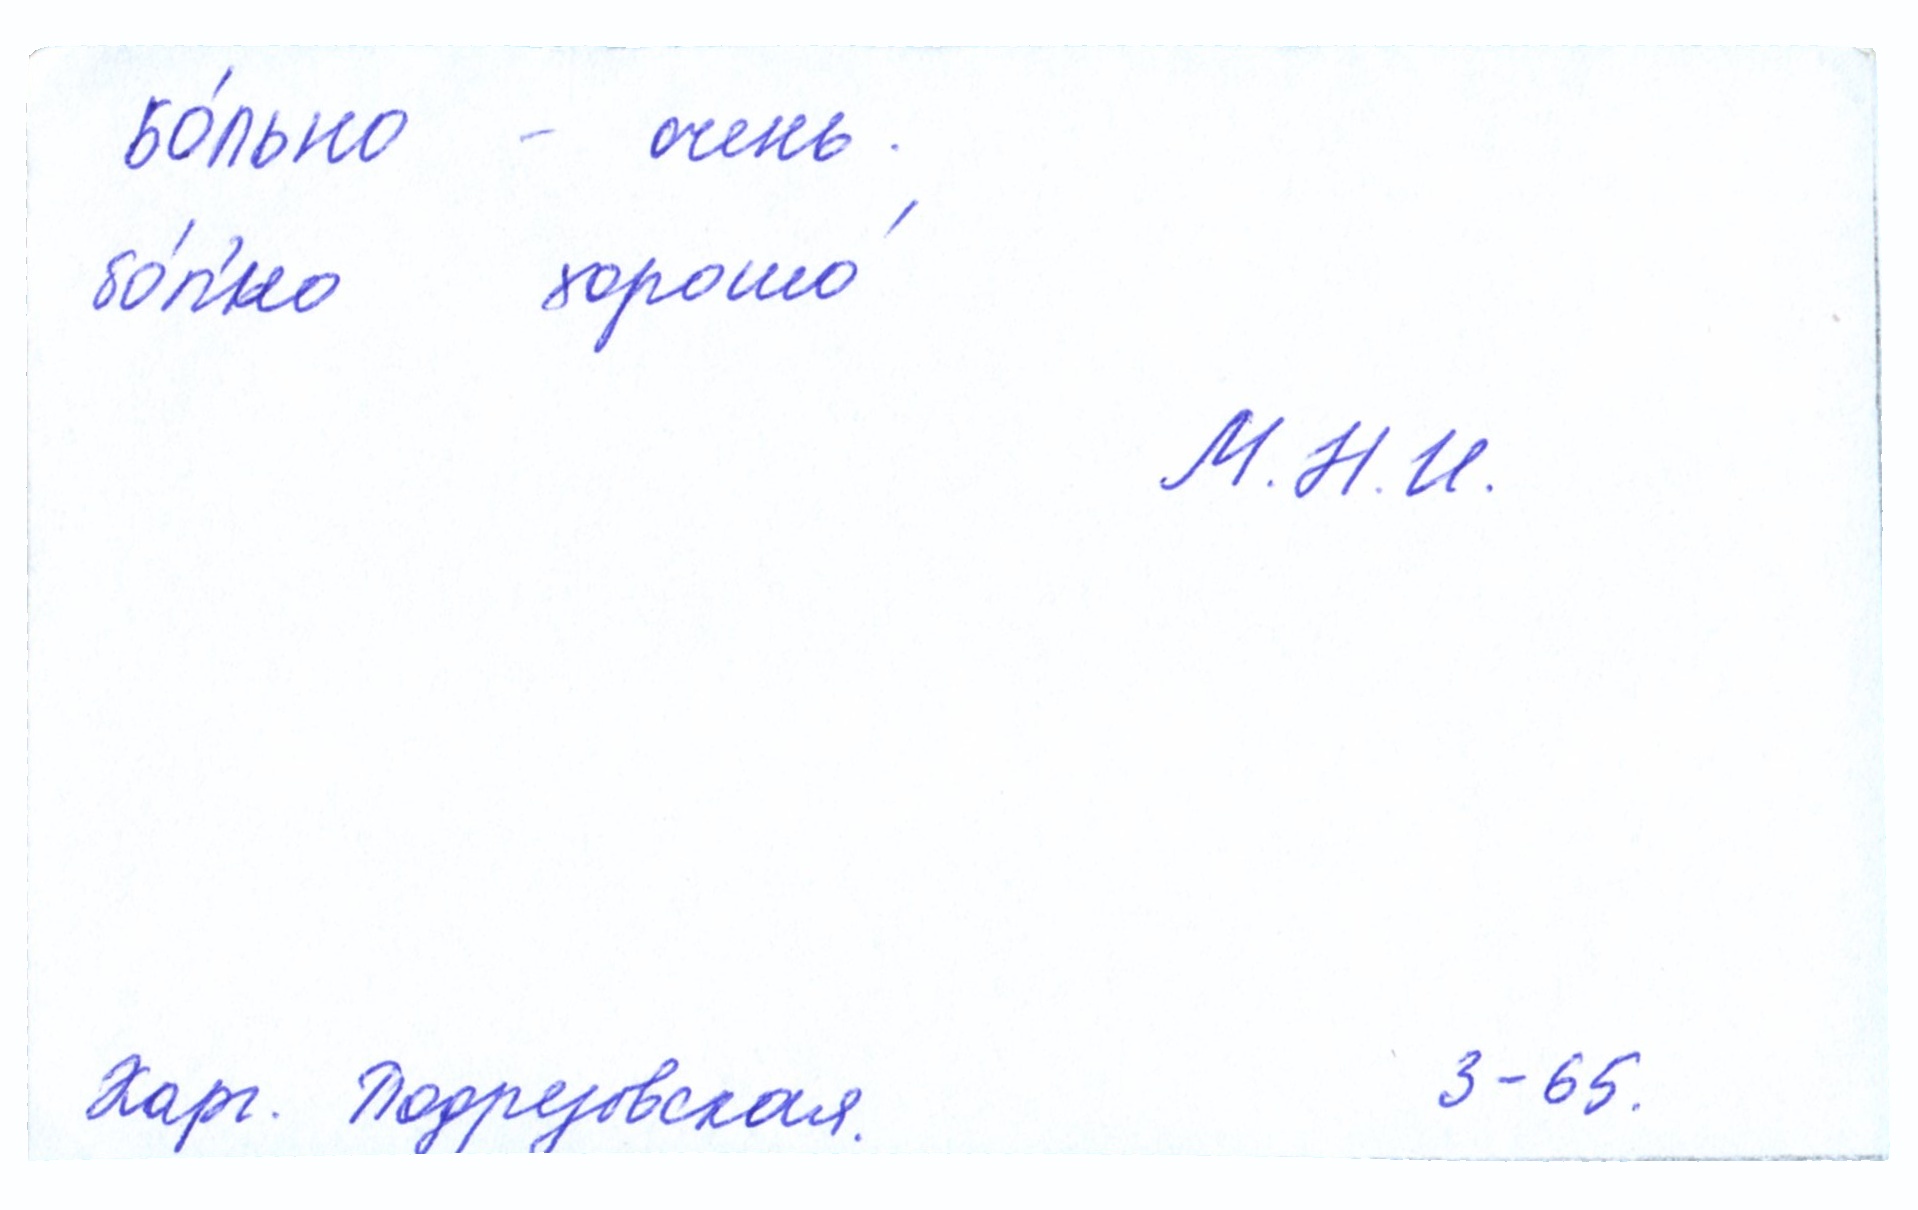 Бо́льно - очень.
бо́л'но хорошо́
М.Н.И.
Харг. Подрезовская. 3-65.